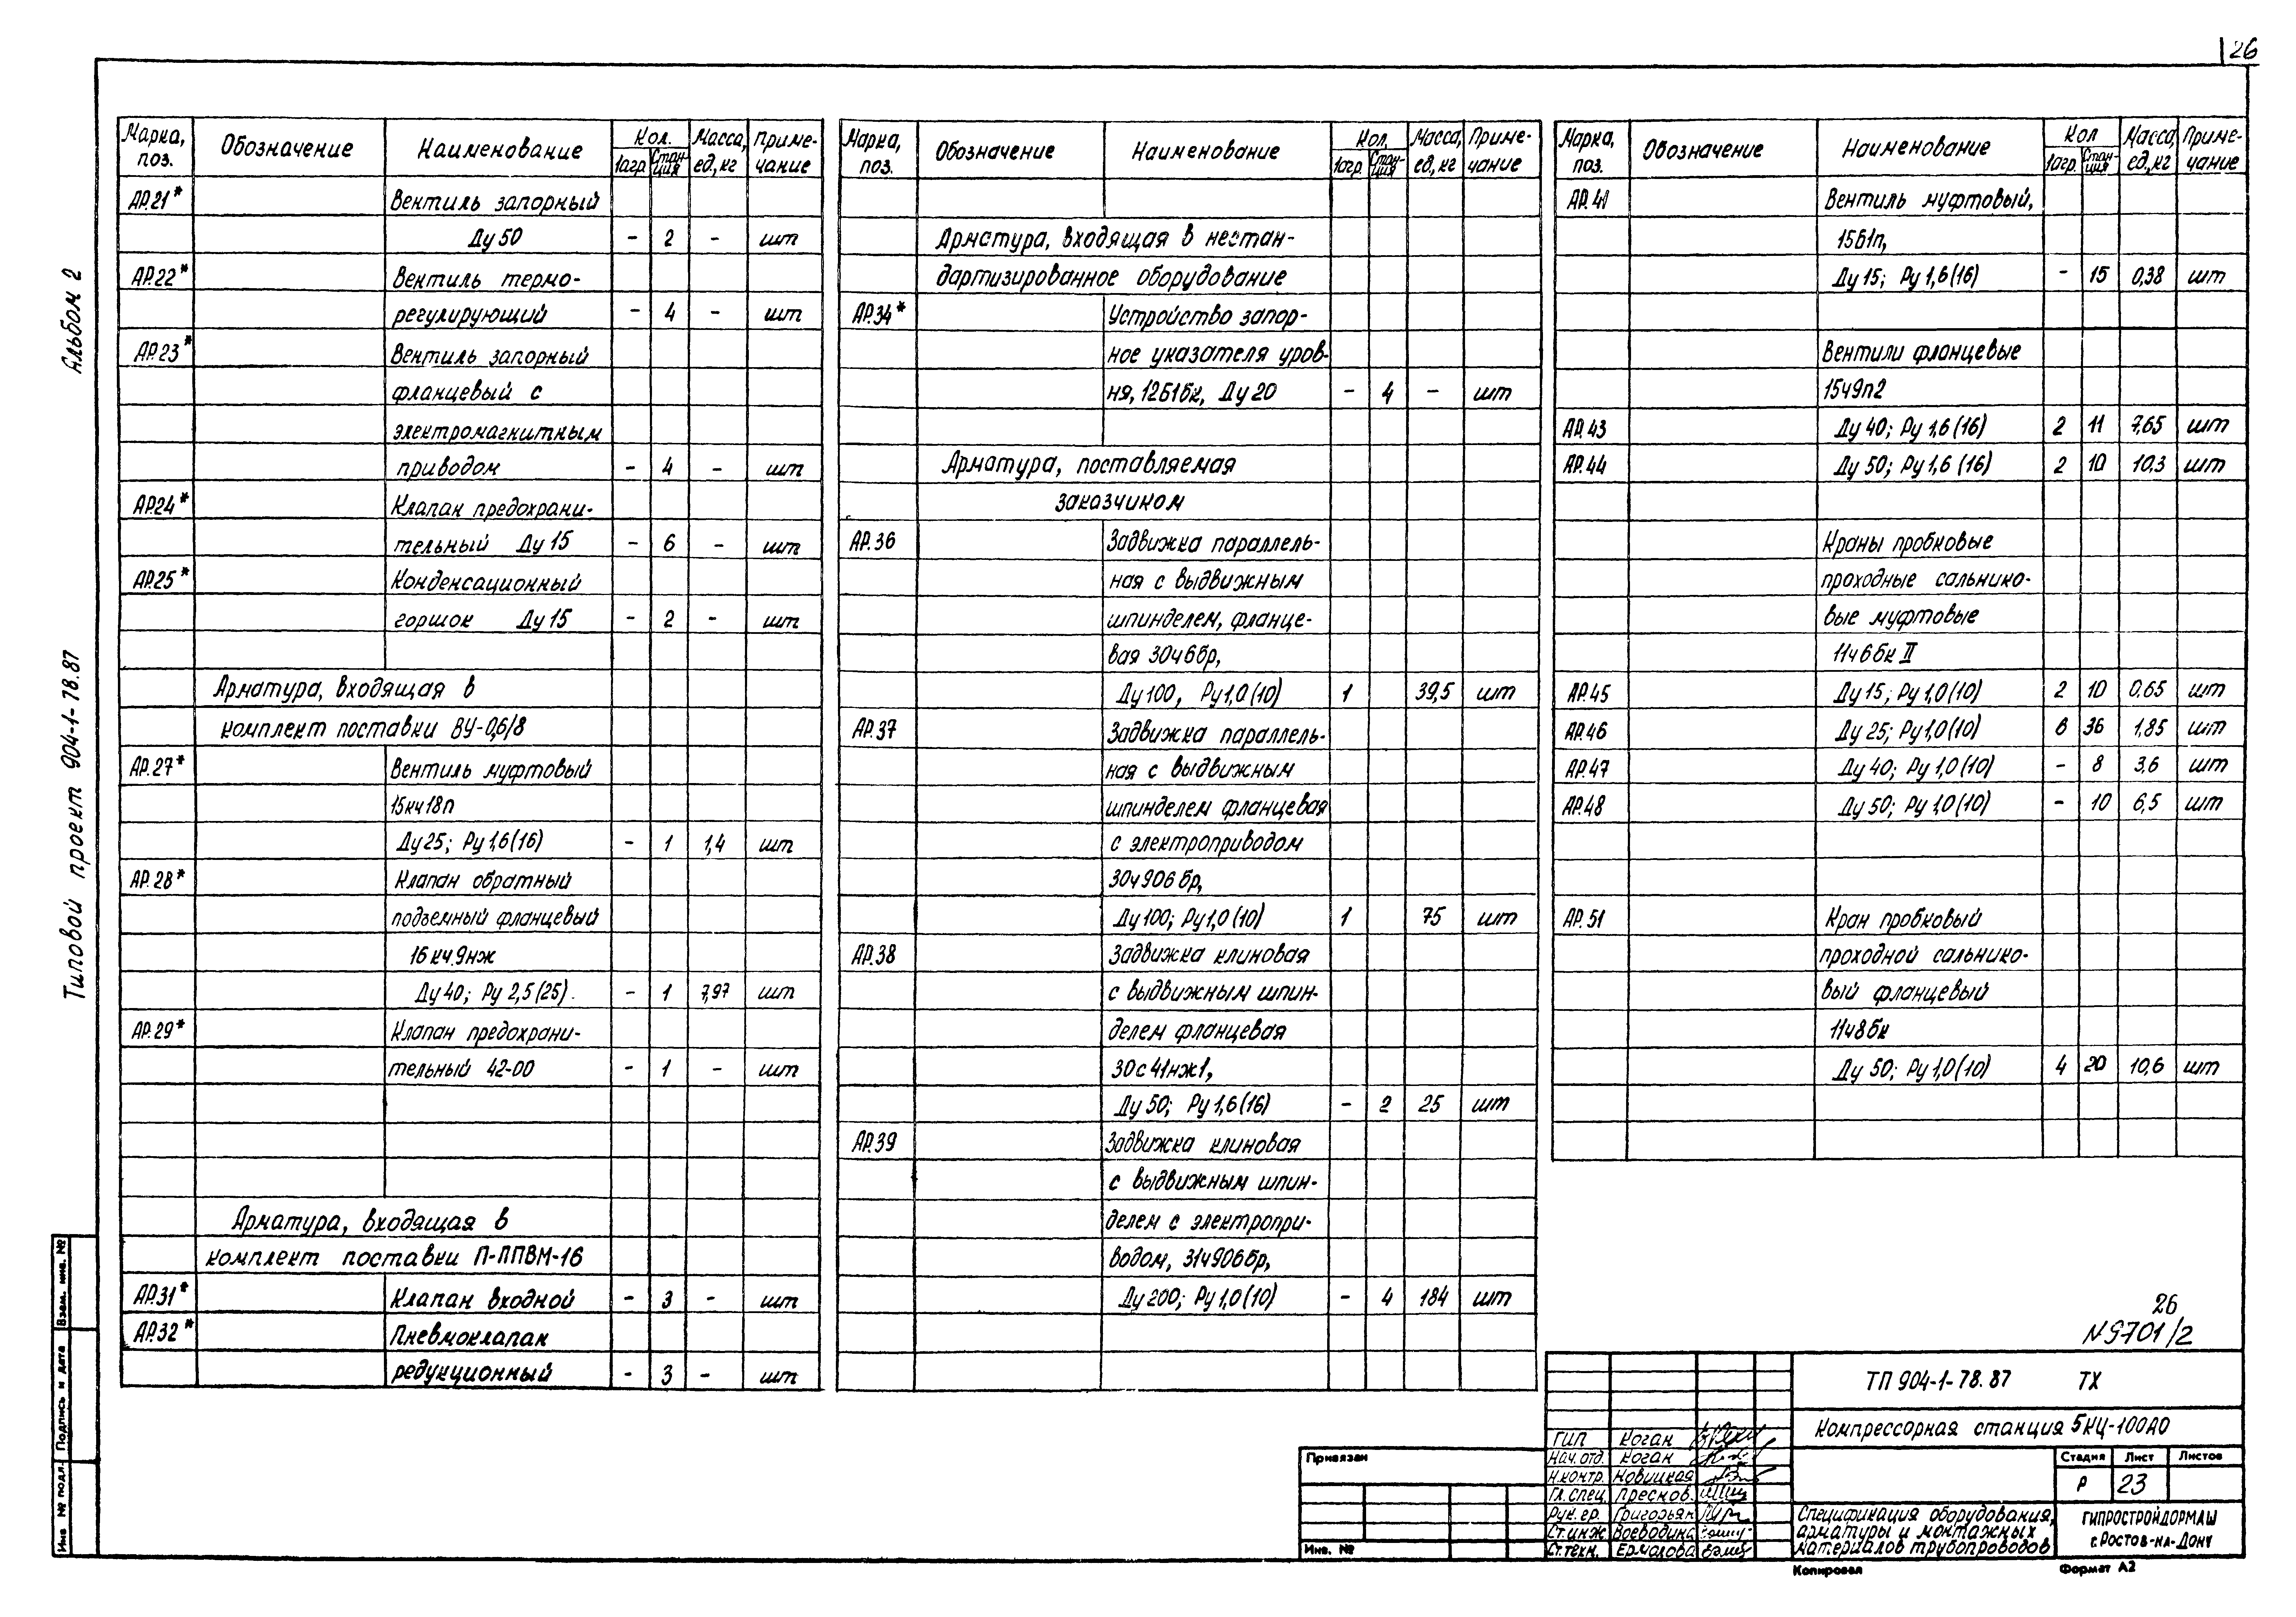 26
Альбом 2
Типовой проект 904-1-78.87
Взам. инв. №
Подпись и дата
Инв № подл.
Марка, поз. Обозначение Наименование Кол. 1агр. Станция Масса, ед., кг Примечание
АР.21* Вентиль запорный
Ду 50 - 2 - шт
АР.22* Вентиль термо-
регулирующий - 4 - шт
АР.23* Вентиль запорный
фланцевый с
электромагнитным
приводом - 4 - шт
АР.24* Клапан предохрани-
тельный Ду 15 - 6 - шт
АР.25* Конденсационный
горшок Ду 15 - 2 - шт
Арматура, входящая в
комплект поставки ВУ-0,6/8
АР.27* Вентиль муфтовый
15кч18п
Ду 25; Ру 1,6(16) - 1 1,4 шт
АР.28* Клапан обратный
подземный фланцевый
16 кч.9нж
Ду 40; Ру 2,5(25). - 1 7,97 шт
АР.29* Клапан предохрани-
тельный 42-00 - 1 - шт
Арматура, входящая в
комплект поставки П-ЛПВМ-16
АР.31* Клапан входной - 3 - шт
АР.32* Пневмоклапан
редукционный - 3 - шт
Марка, поз. Обозначение Наименование Кол. 1агр. Станция Масса, ед., кг Примечание
Арматура, входящая в нестан-
дартизированное оборудование
АР.34* Устройство запор-
ное указателя уров-
ня, 12Б1бк, Ду 20 - 4 - шт
Арматура, поставляемая
заказчиком
АР.36 Задвижка параллель-
ная с выдвижным
шпинделем, фланце-
вая 30ч6бр,
Ду 100, Ру1,0(10) 1 39,5 шт
АР.37 Задвижка параллель-
ная с выдвижным
шпинделем фланцевая
с электроприводом
30ч906бр,
Ду 100; Ру1,0(10) 1 75 шт
АР.38 Задвижка клиновая
с выдвижным шпин-
делем фланцевая
30с41нж1,
Ду 50; Ру 1,6(16) - 2 25 шт
АР.39 Задвижка клиновая
с выдвижным шпин-
делем с электропри-
водом, 31ч906бр,
Ду 200; Ру1,0(10) - 4 184 шт
Марка, поз. Обозначение Наименование Кол 1агр. Станция Масса, ед., кг Примечание
АР.41 Вентиль муфтовый,
15б1п,
Ду 15; Ру 1,6(16) - 15 0,38 шт
Вентили фланцевые
15ч9п2
АР.43 Ду 40; Ру 1,6(16) 2 11 7,65 шт
АР.44 Ду 50; Ру 1,6(16) 2 10 10,3 шт
Краны пробковые
проходные сальнико-
вые муфтовые
11ч6бк II
АР.45 Ду 15; Ру 1,0(10) 2 10 0,65 шт
АР.46 Ду 25; Ру 1,0(10) 6 36 1,85 шт
АР.47 Ду 40; Ру 1,0(10) - 8 3,6 шт
АР.48 Ду 50; Ру 1,0(10) - 10 6,5 шт
АР.51 Кран пробковый
проходной сальнико-
вый фланцевый
11ч8бк
Ду 50; Ру 1,0(10) 4 20 10,6 шт
26
N9701/2
ТП 904-1-78.87 ТХ
Компрессорная станция 5КЦ-100А0
Стадия Лист Листов
Р 23
Спецификация оборудования,
арматуры и монтажных
материалов трубопроводов
ГИПРОСТРОЙДОРМАШ
г.Ростов-на-Дону
ГИП Коган
Нач. отд. Коган
Н.контр. Новицкая
Гл. спец. Преснов.
Рук. гр. Григорьян
Ст.инж Воеводина
Ст.техн. Ермолова
Привязан
Инв. №
Копировал
Формат А2